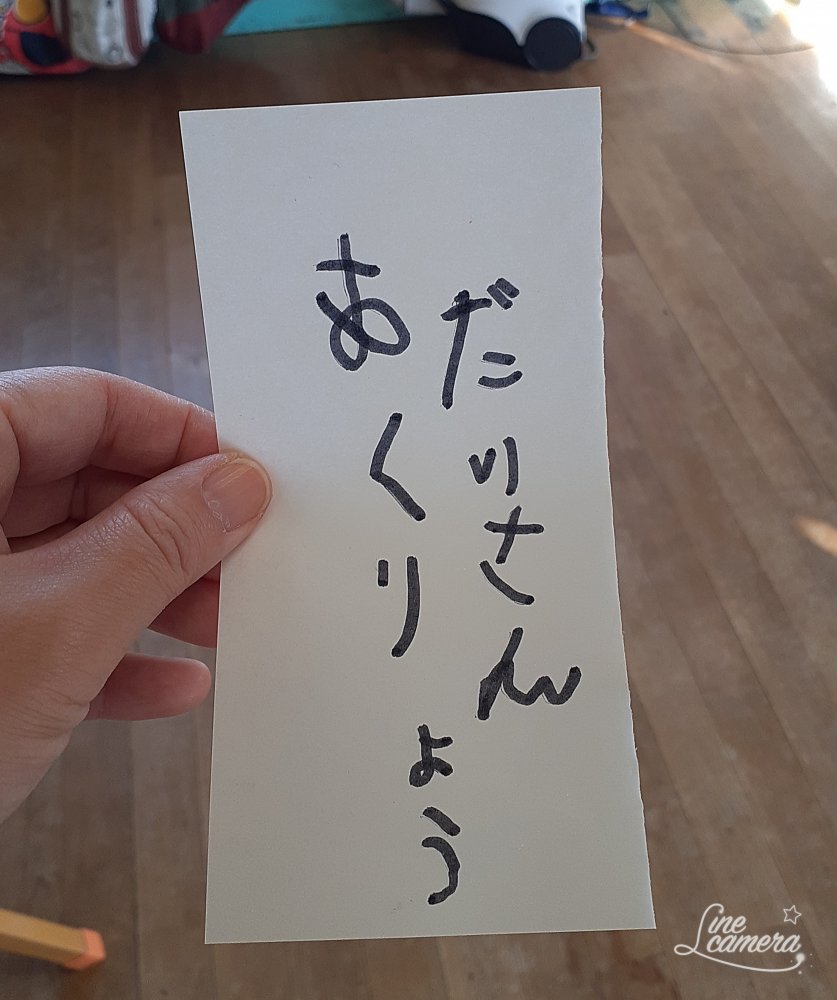 だりさん
あくりょう
Line camera